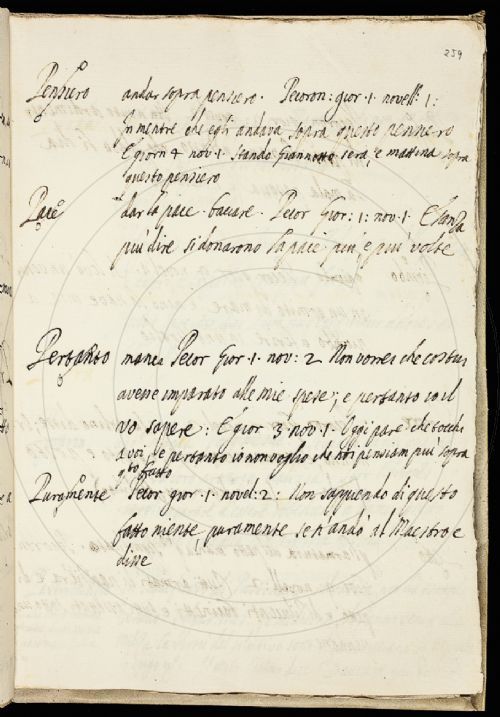 259
Pensiero andar sopra pensiero. Pecoron: gior. 1. novell. 1:
In mentre che egli andava sopra questo pensiero
E giorn 4 nov. 1. stando Giannotto sera, e mattina sopra
questo pensiero
Pace dar la pace. baciare. Pecor Gior: 1: nov. 1. E senza
più dire si donarono la pace più, e più volte
Pertanto manca Pecor Gior. 1. nov: 2 Non vorrei che costui
avesse imparato alle mie spese; e pertanto io il
vo sapere: E Gior 3 nov. 1. Oggi pare che tocchi
a voi, e pertanto io non voglio che noi pensiam più sopra
q.to fatto
Puramente Pecor gior. 1. novel: 2: Non sappiendo di questo
fatto niente, puramente se n'andò al Maestro e
disse